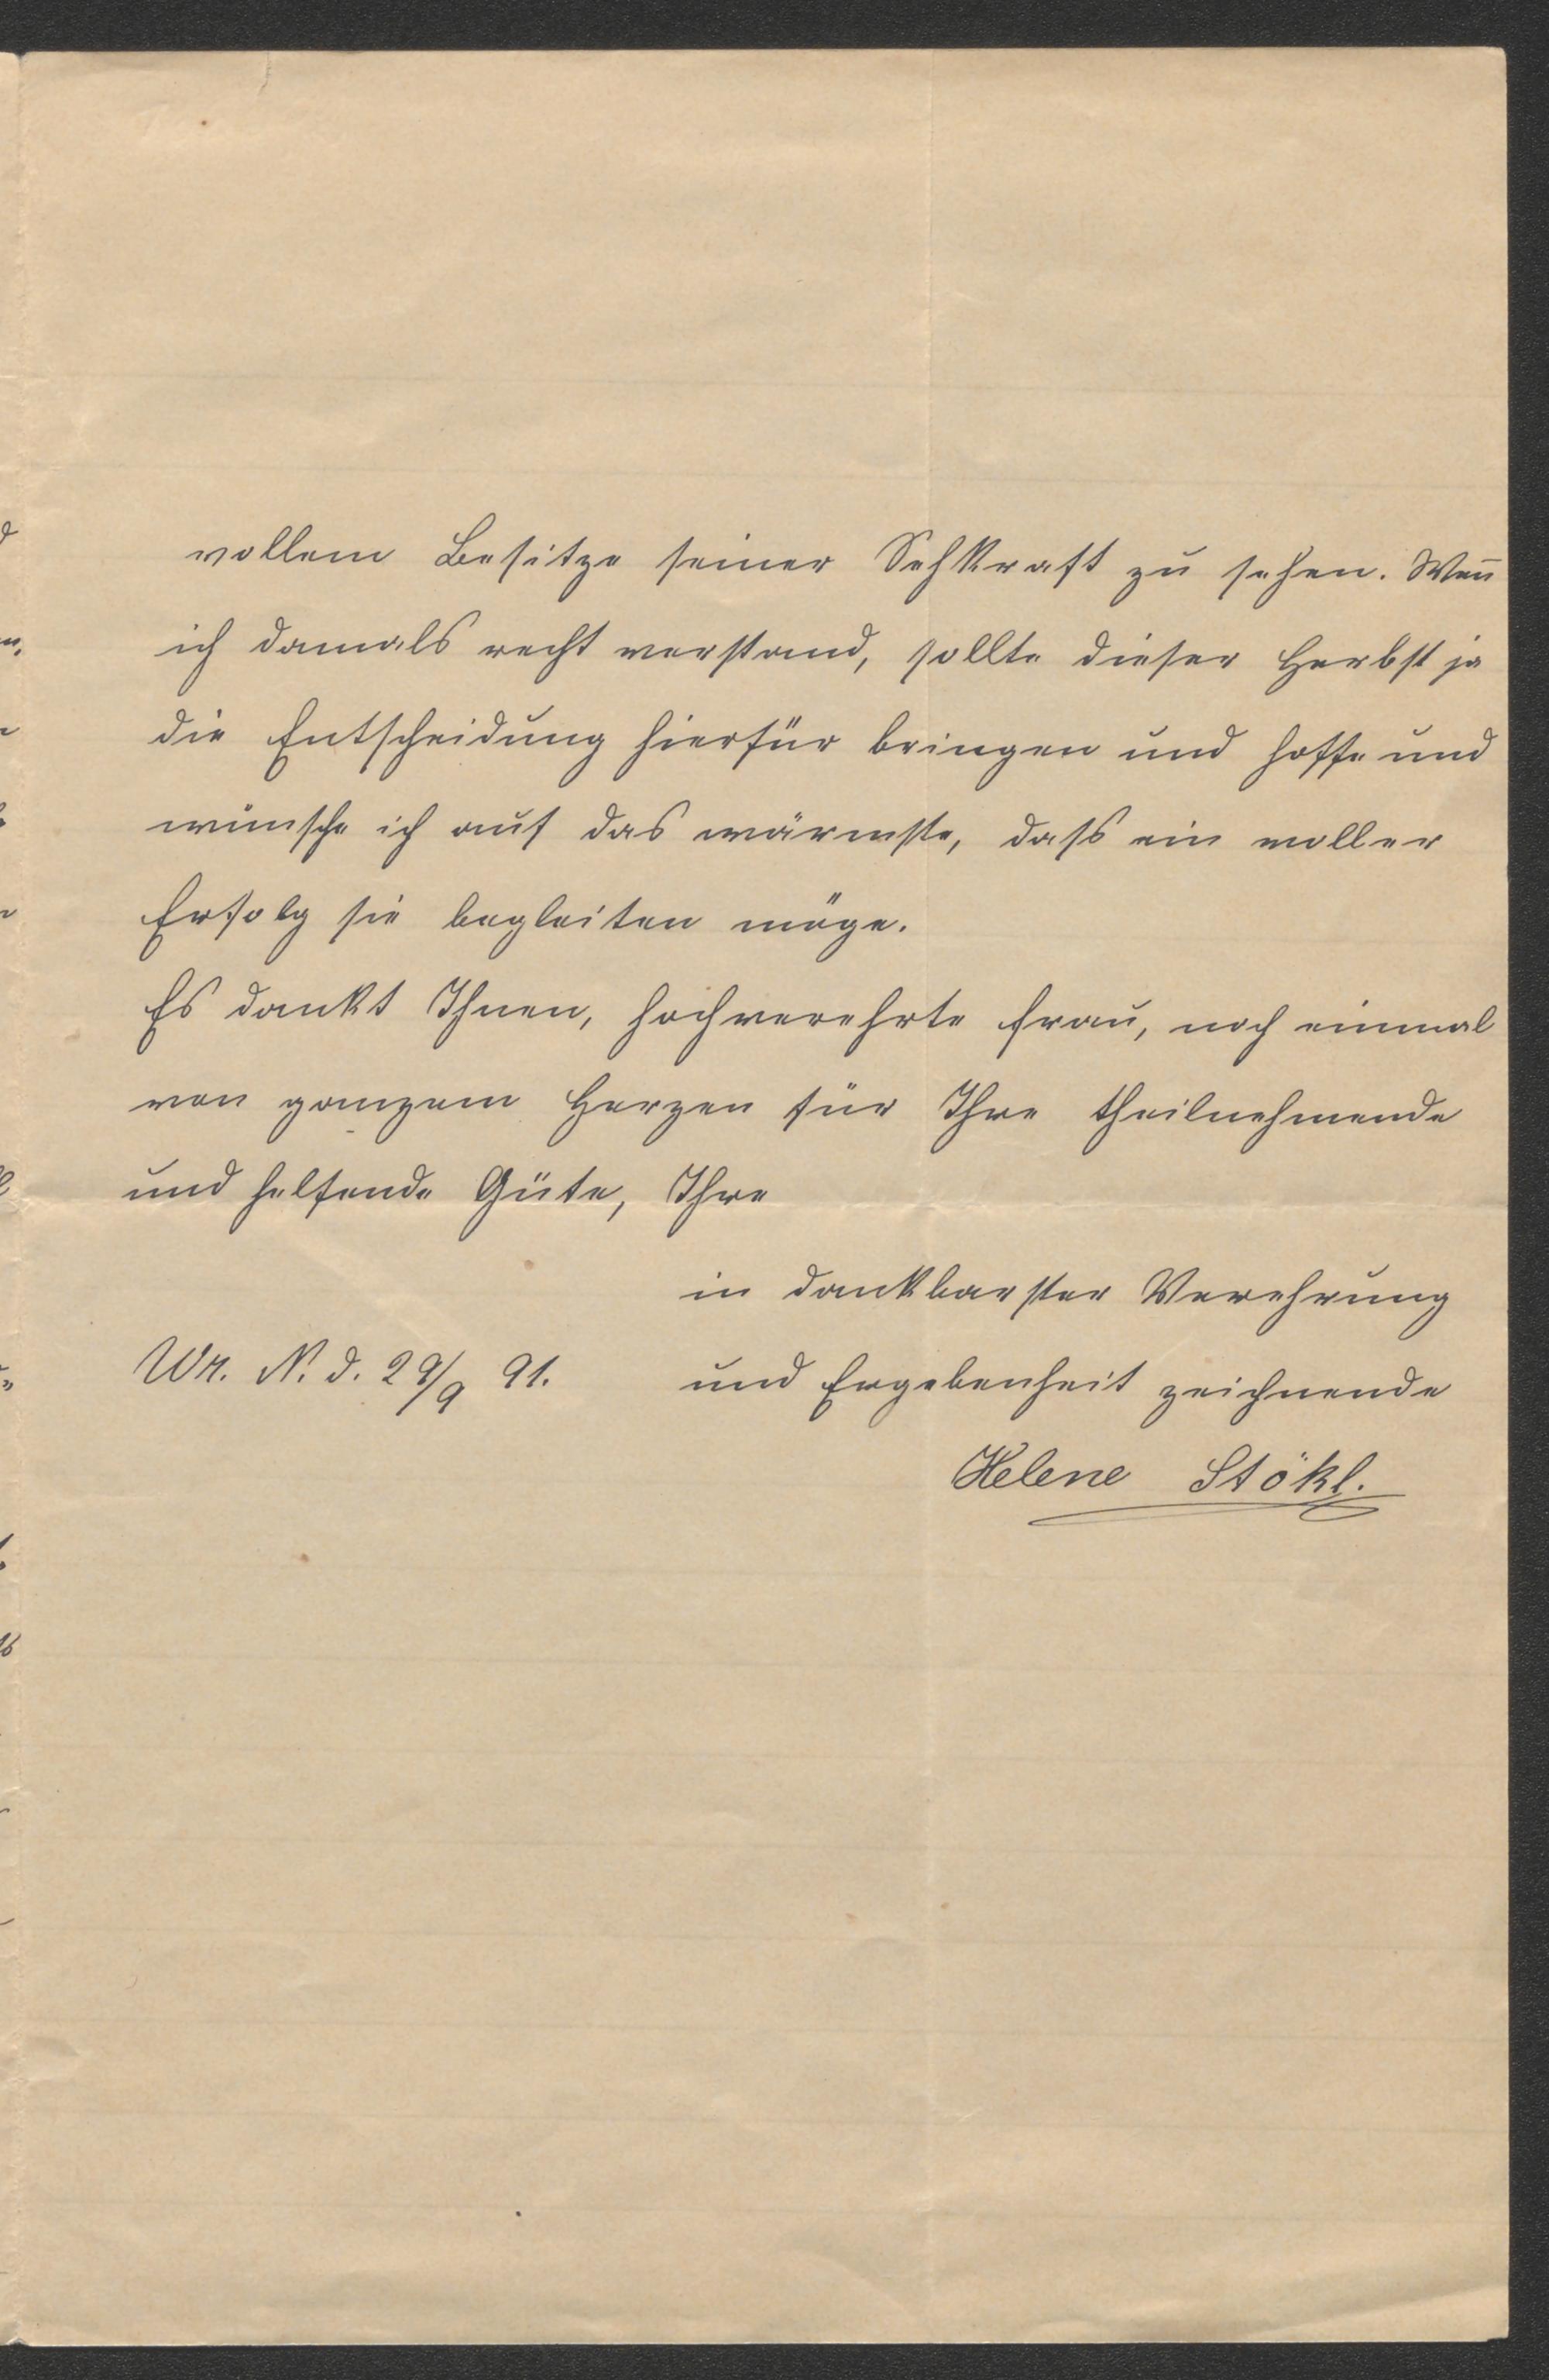 vollem Besitze seiner Sehkraft zu sehen. Weñ
ich damals recht verstand, sollte dieser Herbst ja
die Entscheidung hierfür bringen und hoffe und
wünsche ich auf das wärmste, dass ein voller
Erfolg sie begleiten möge.
Es dankt Ihnen, hochverehrte Frau, noch einmal
von ganzem Herzen für Ihre theilnehmende
und helfende Güte, Ihre
in dankbarster Verehrung
Wr. N. d. 29/9 91. und Ergebenheit zeichnende
Helene Stökl.